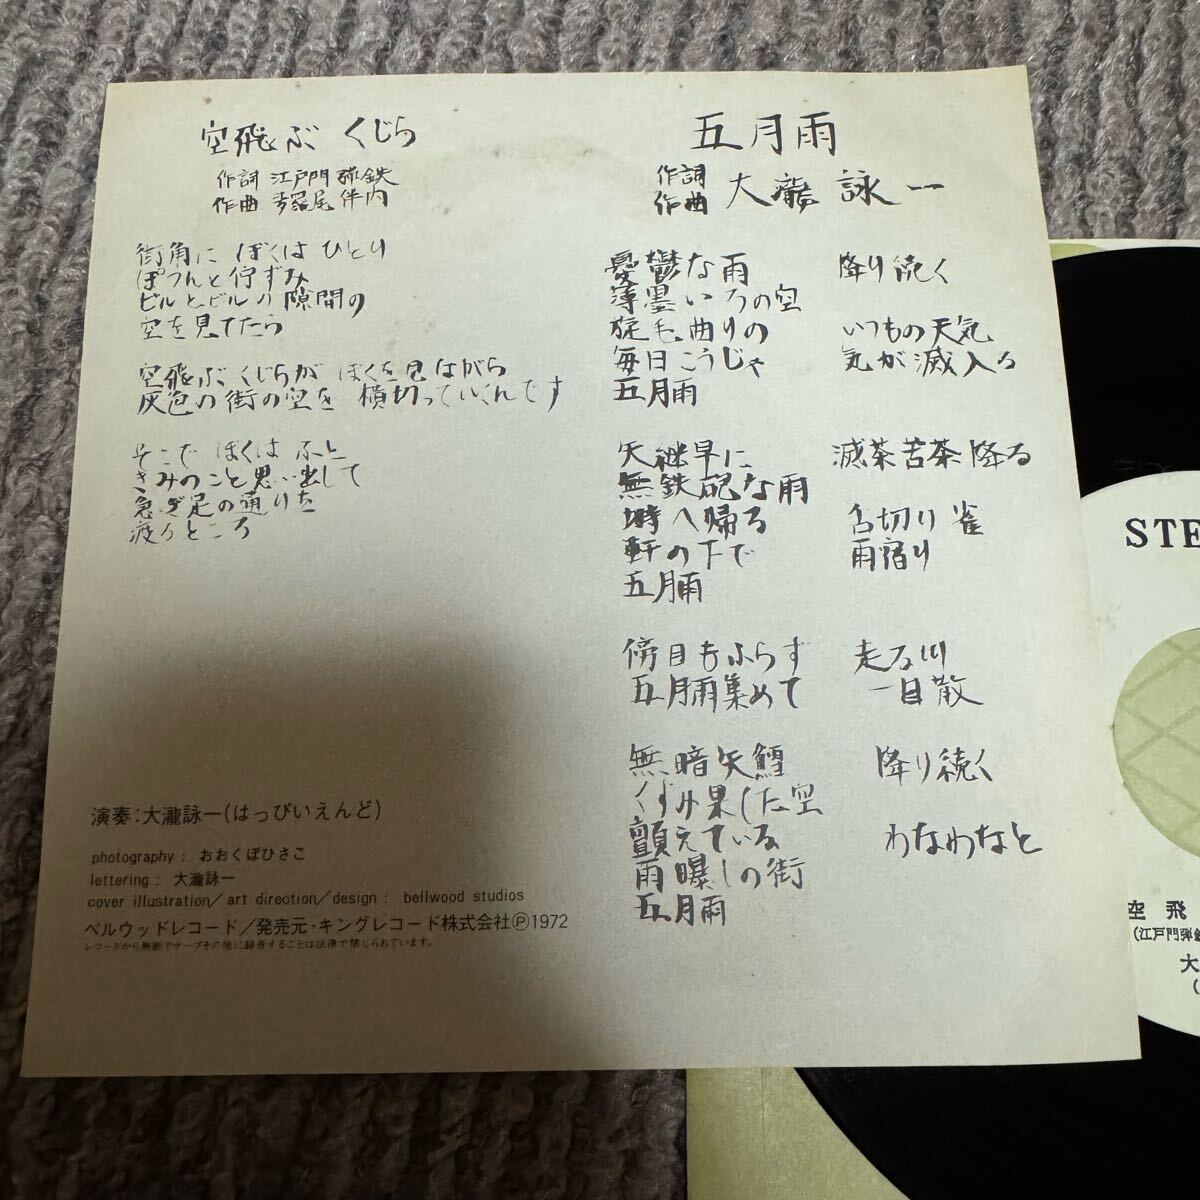 空飛ぶ くじら
作詞 江戸門 弾鉄
作曲 多羅尾 伴内
街角に ぼくは ひとり
ぽつんと佇ずみ
ビルとビルの 隙間の
空を見てたら
空飛ぶ くじらが ぼくを見ながら
灰色の街の空を 横切っていくんです
そこで ぼくは ふと
きみのこと思い出して
急ぎ足の通りを
渡るところ
演奏:大瀧詠一(はっぴいえんど)
photography : おおくぼひさこ
lettering : 大瀧詠一
cover illustration/art direction/design : bellwood studios
ベルウッドレコード/発売元・キングレコード株式会社Ⓟ1972
レコードから無断でテープその他に録音することは法律で禁じられています。
五月雨
作詞
作曲 大瀧 詠一
憂鬱な雨 降り続く
薄墨いろの空
旋毛曲りの いつもの天気
毎日こうじゃ 気が滅入る
五月雨
矢継早に 滅茶苦茶降る
無鉄砲な雨
塒へ帰る 舌切り雀
軒の下で 雨宿り
五月雨
傍目もふらず 走る川
五月雨集めて 一目散
無暗矢鱈 降り続く
くすみ果した空
顫えている わなわなと
雨曝しの街
五月雨
STE
空飛
(江戸門弾鉄
大
(